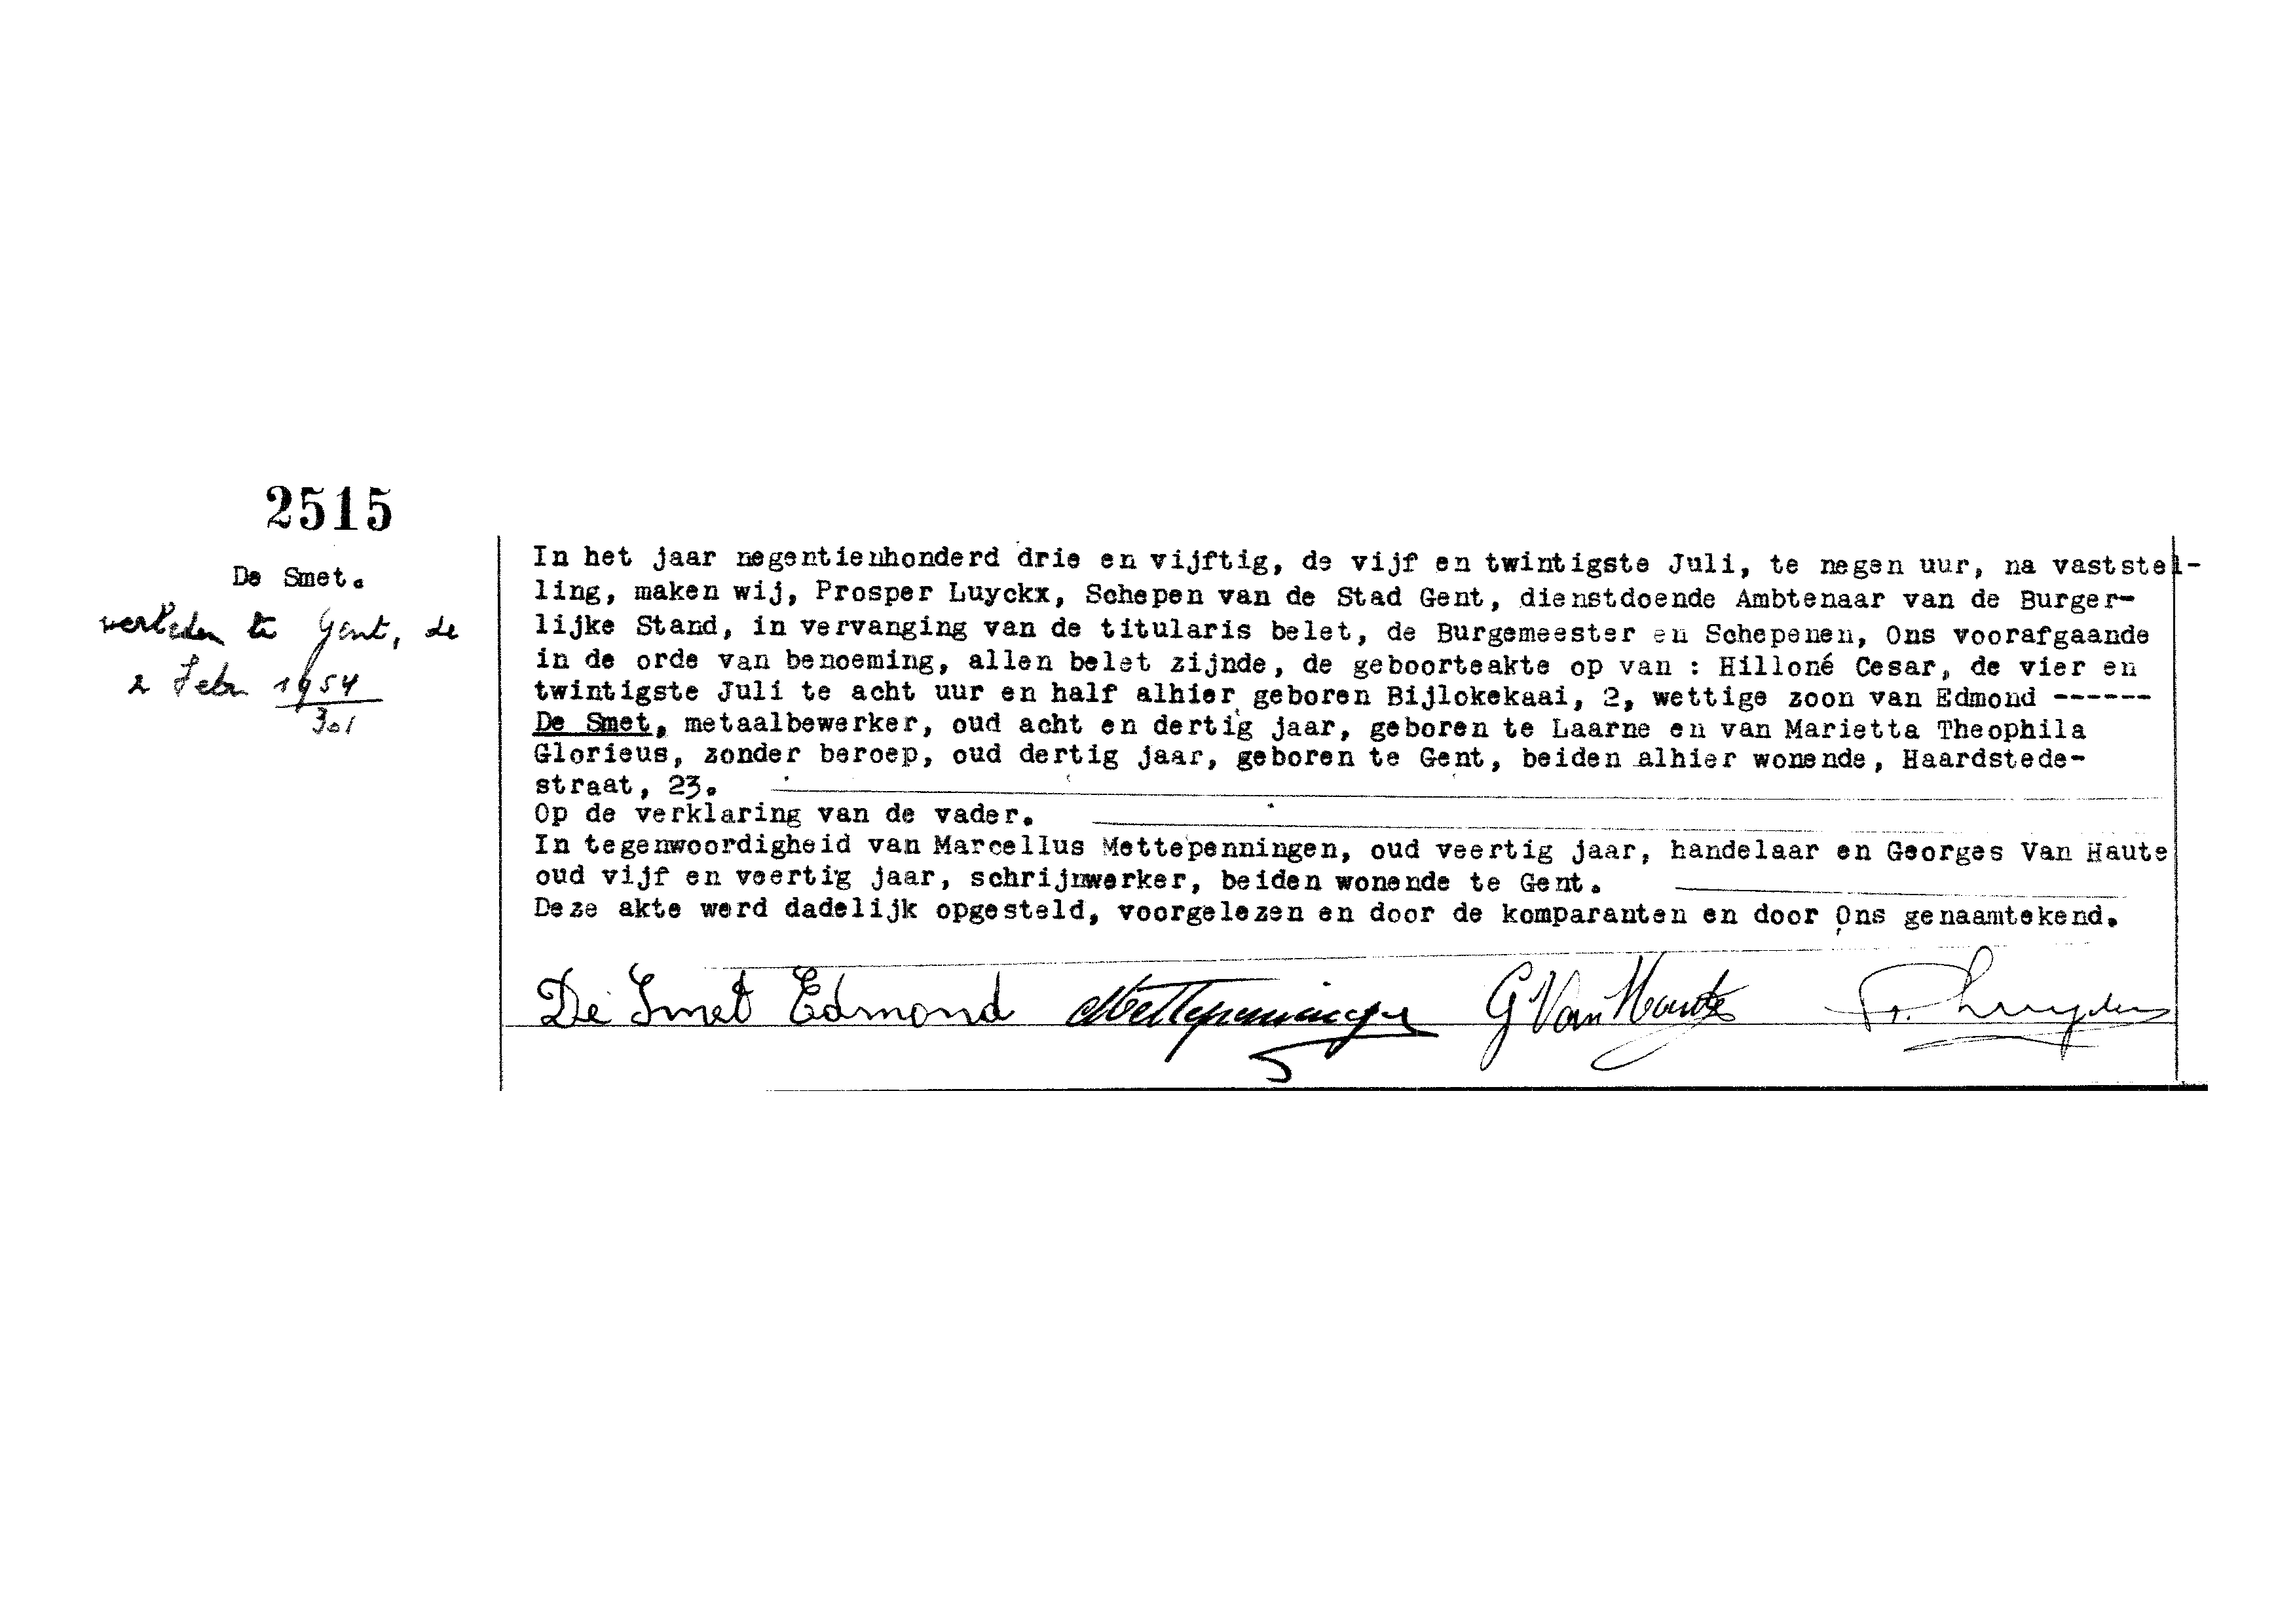 2515
De Smet.
overleden te Gent, de
2 Febr 1954
301
In het jaar negentienhonderd drie en vijftig, de vijf en twintigste Juli, te negen uur, na vaststel-
ling, maken wij, Prosper Luyckx, Schepen van de Stad Gent, dienstdoende Ambtenaar van de Burger-
lijke Stand, in vervanging van de titularis belet, de Burgemeester en Schepenen, Ons voorafgaande
in de orde van benoeming, allen belet zijnde, de geboorteakte op van : Hilloné Cesar, de vier en
twintigste Juli te acht uur en half alhier geboren Bijlokekaai, 2, wettige zoon van Edmond ------
De Smet, metaalbewerker, oud acht en dertig jaar, geboren te Laarne en van Marietta Theophila
Glorieus, zonder beroep, oud dertig jaar, geboren te Gent, beiden alhier wonende, Haardstede-
straat, 23.
Op de verklaring van de vader.
In tegenwoordigheid van Marcellus Mettepenningen, oud veertig jaar, handelaar en Georges Van Haute
oud vijf en veertig jaar, schrijnwerker, beiden wonende te Gent.
Deze akte werd dadelijk opgesteld, voorgelezen en door de komparanten en door Ons genaamtekend.
De Smet Edmond Mettepenningen G Van Haute Pr. Luyckx